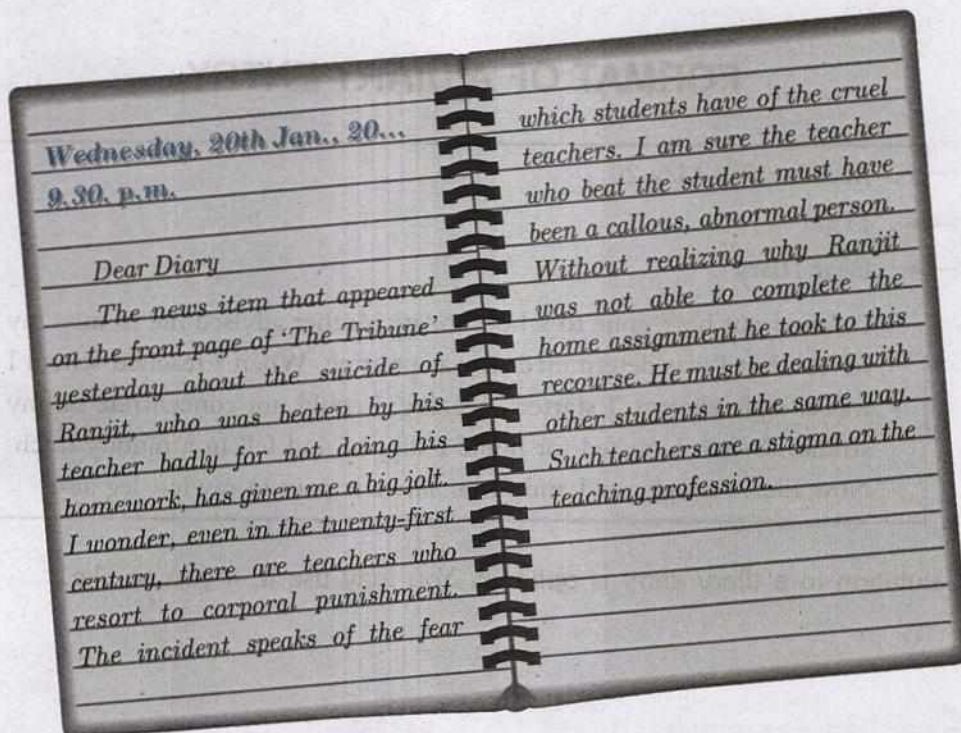 Wednesday, 20th Jan., 20...
9.30. p.m.
Dear Diary
The news item that appeared
on the front page of 'The Tribune'
yesterday about the suicide of
Ranjit, who was beaten by his
teacher badly for not doing his
homework, has given me a big jolt.
I wonder, even in the twenty-first
century, there are teachers who
resort to corporal punishment.
The incident speaks of the fear
which students have of the cruel
teachers. I am sure the teacher
who beat the student must have
been a callous, abnormal person.
Without realizing why Ranjit
was not able to complete the
home assignment he took to this
recourse. He must be dealing with
other students in the same way.
Such teachers are a stigma on the
teaching profession.